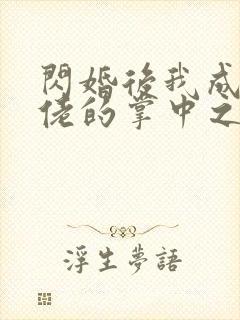 閃婚後我成
佬的掌中之
浮生夢語